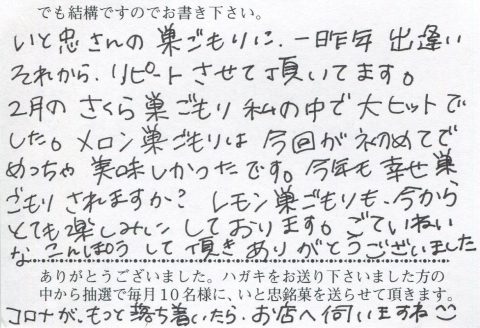 でも結構ですのでお書き下さい。
いと忠さんの巣ごもりに、一昨年出逢い
それから、リピートさせて頂いてます。
2月のさくら巣ごもり私の中で大ヒットで
した。メロン巣ごもりは今回が初めてで
めっちゃ美味しかったです。今年も幸せ巣
ごもりされますか？レモン巣ごもりも、今から
とても楽しみにしております。ごていねい
なこんぽうして頂きありがとうございました
ありがとうございました。ハガキをお送り下さいました方の
中から抽選で毎月10名様に、いと忠銘菓を送らせて頂きます。
コロナが、もっと落ち着いたら、お店へ伺いますね